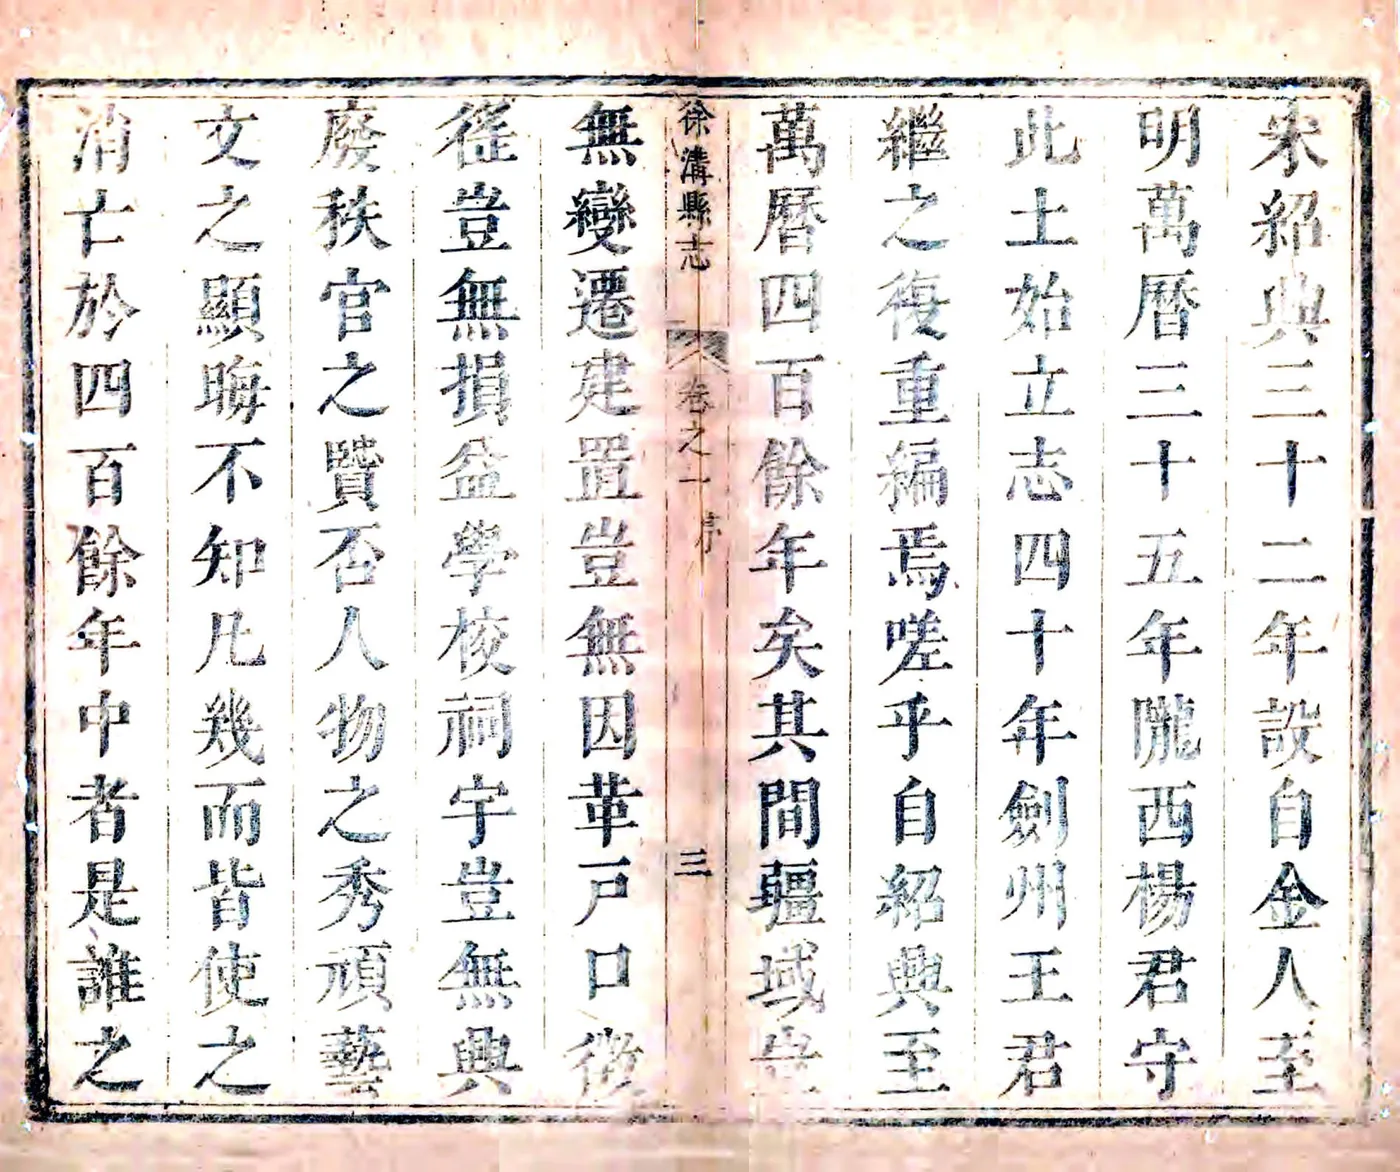 宋紹興三十二年設自金人至
明萬曆三十五年隴西楊君守
此土始立志四十年劍州王君
繼之復重編焉嗟乎自紹興至
萬曆四百餘年矣其間疆域豈
徐溝縣志 卷之一 序 三
無變遷建置豈無因革戸口徵
徭豈無損益學校祠宇豈無興
廢秩官之賢否人物之秀頑藝
文之顯晦不知凡幾而皆使之
消亡於四百餘年中者是誰之